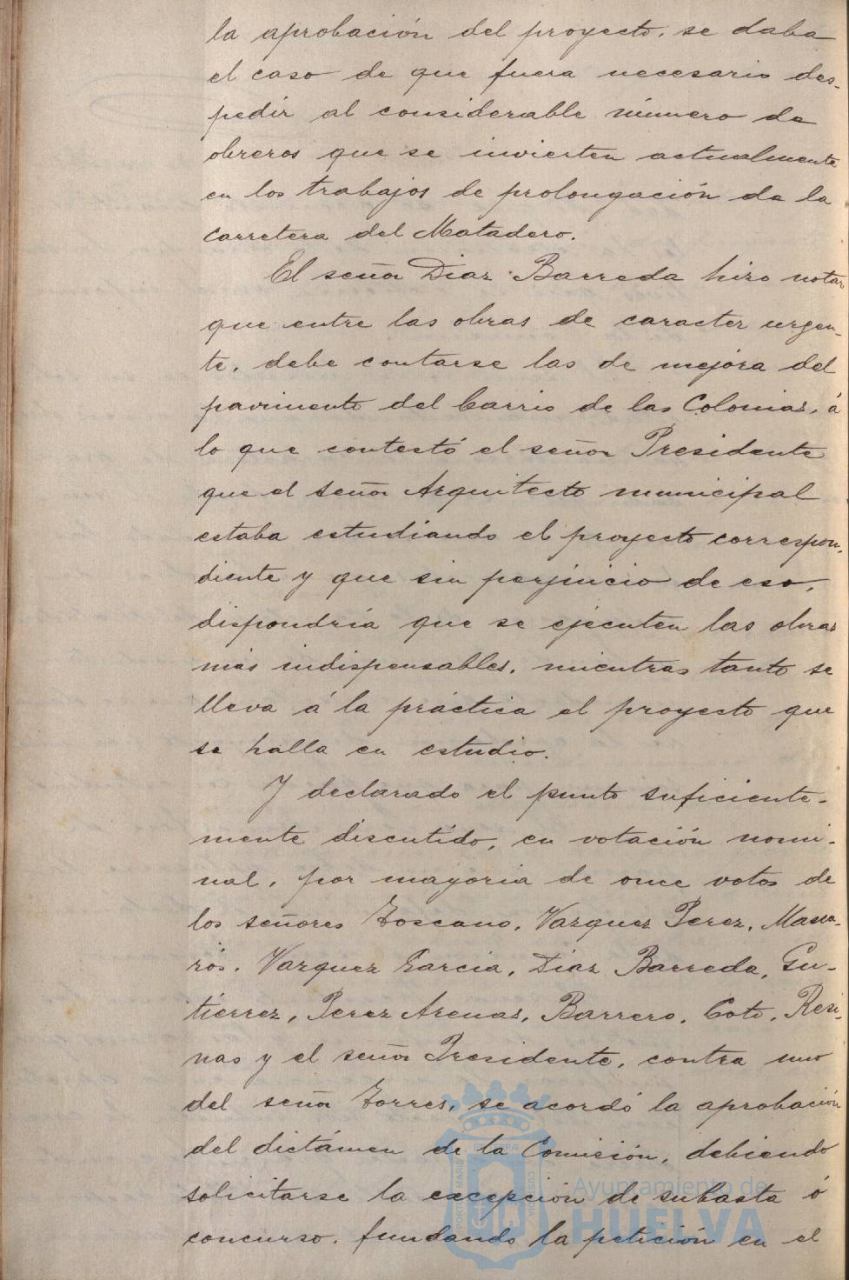 la aprobación del proyecto, se daba
el caso de que fuera necesario des-
pedir al considerable número de
obreros que se invierten actualmente
en los trabajos de prolongación de la
carretera del Matadero.
El señor Diaz Barreda hizo notar
que entre las obras de caracter urgen-
te, debe contarse las de mejora del
pavimento del barrio de las Colonias, á
lo que contestó el señor Presidente
que el señor Arquitecto municipal
estaba estudiando el proyecto correspon-
diente y que sin perjuicio de eso,
dispondría que se ejecuten las obras
más indispensables, mientras tanto se
lleva á la práctica el proyecto que
se halla en estudio.
Y declarado el punto suficiente-
mente discutido, en votación nomi-
nal, por mayoria de once votos de
los señores Toscano, Vazquez Perez,
Vazquez Garcia, Diaz Barreda, Gu-
tiérrez, Perez Arenas, Barrero, Coto, Resi-
nas y el señor Presidente, contra uno
del señor Torres, se acordó la aprobación
del dictámen de la Comisión, debiendo
solicitarse la excepción de subasta ó
concurso, fundando la petición en el
Ayuntamiento de
HUELVA